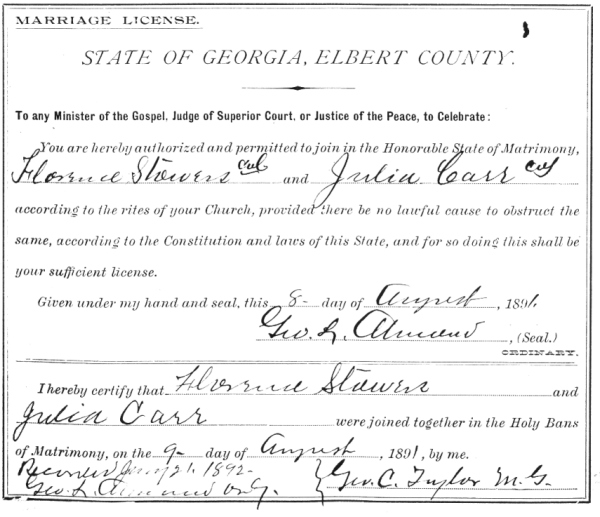 MARRIAGE LICENSE.
STATE OF GEORGIA, ELBERT COUNTY.
To any Minister of the Gospel, Judge of Superior Court, or Justice of the Peace, to Celebrate:
You are hereby authorized and permitted to join in the Honorable State of Matrimony,
Florence Stowers col and Julia Carr col
according to the rites of your Church, provided there be no lawful cause to obstruct the
same, according to the Constitution and laws of this State, and for so doing this shall be
your sufficient license.
Given under my hand and seal, this 8- day of August, 1891.
Geo. L. Almand, (Seal.)
ORDINARY.
I hereby certify that Florence Stowers and
Julia Carr were joined together in the Holy Bans
of Matrimony, on the 9- day of August, 1891, by me.
Recorded 21. 1892- Geo. C. Taylor M.G.
Geo. L. Almand Ord.